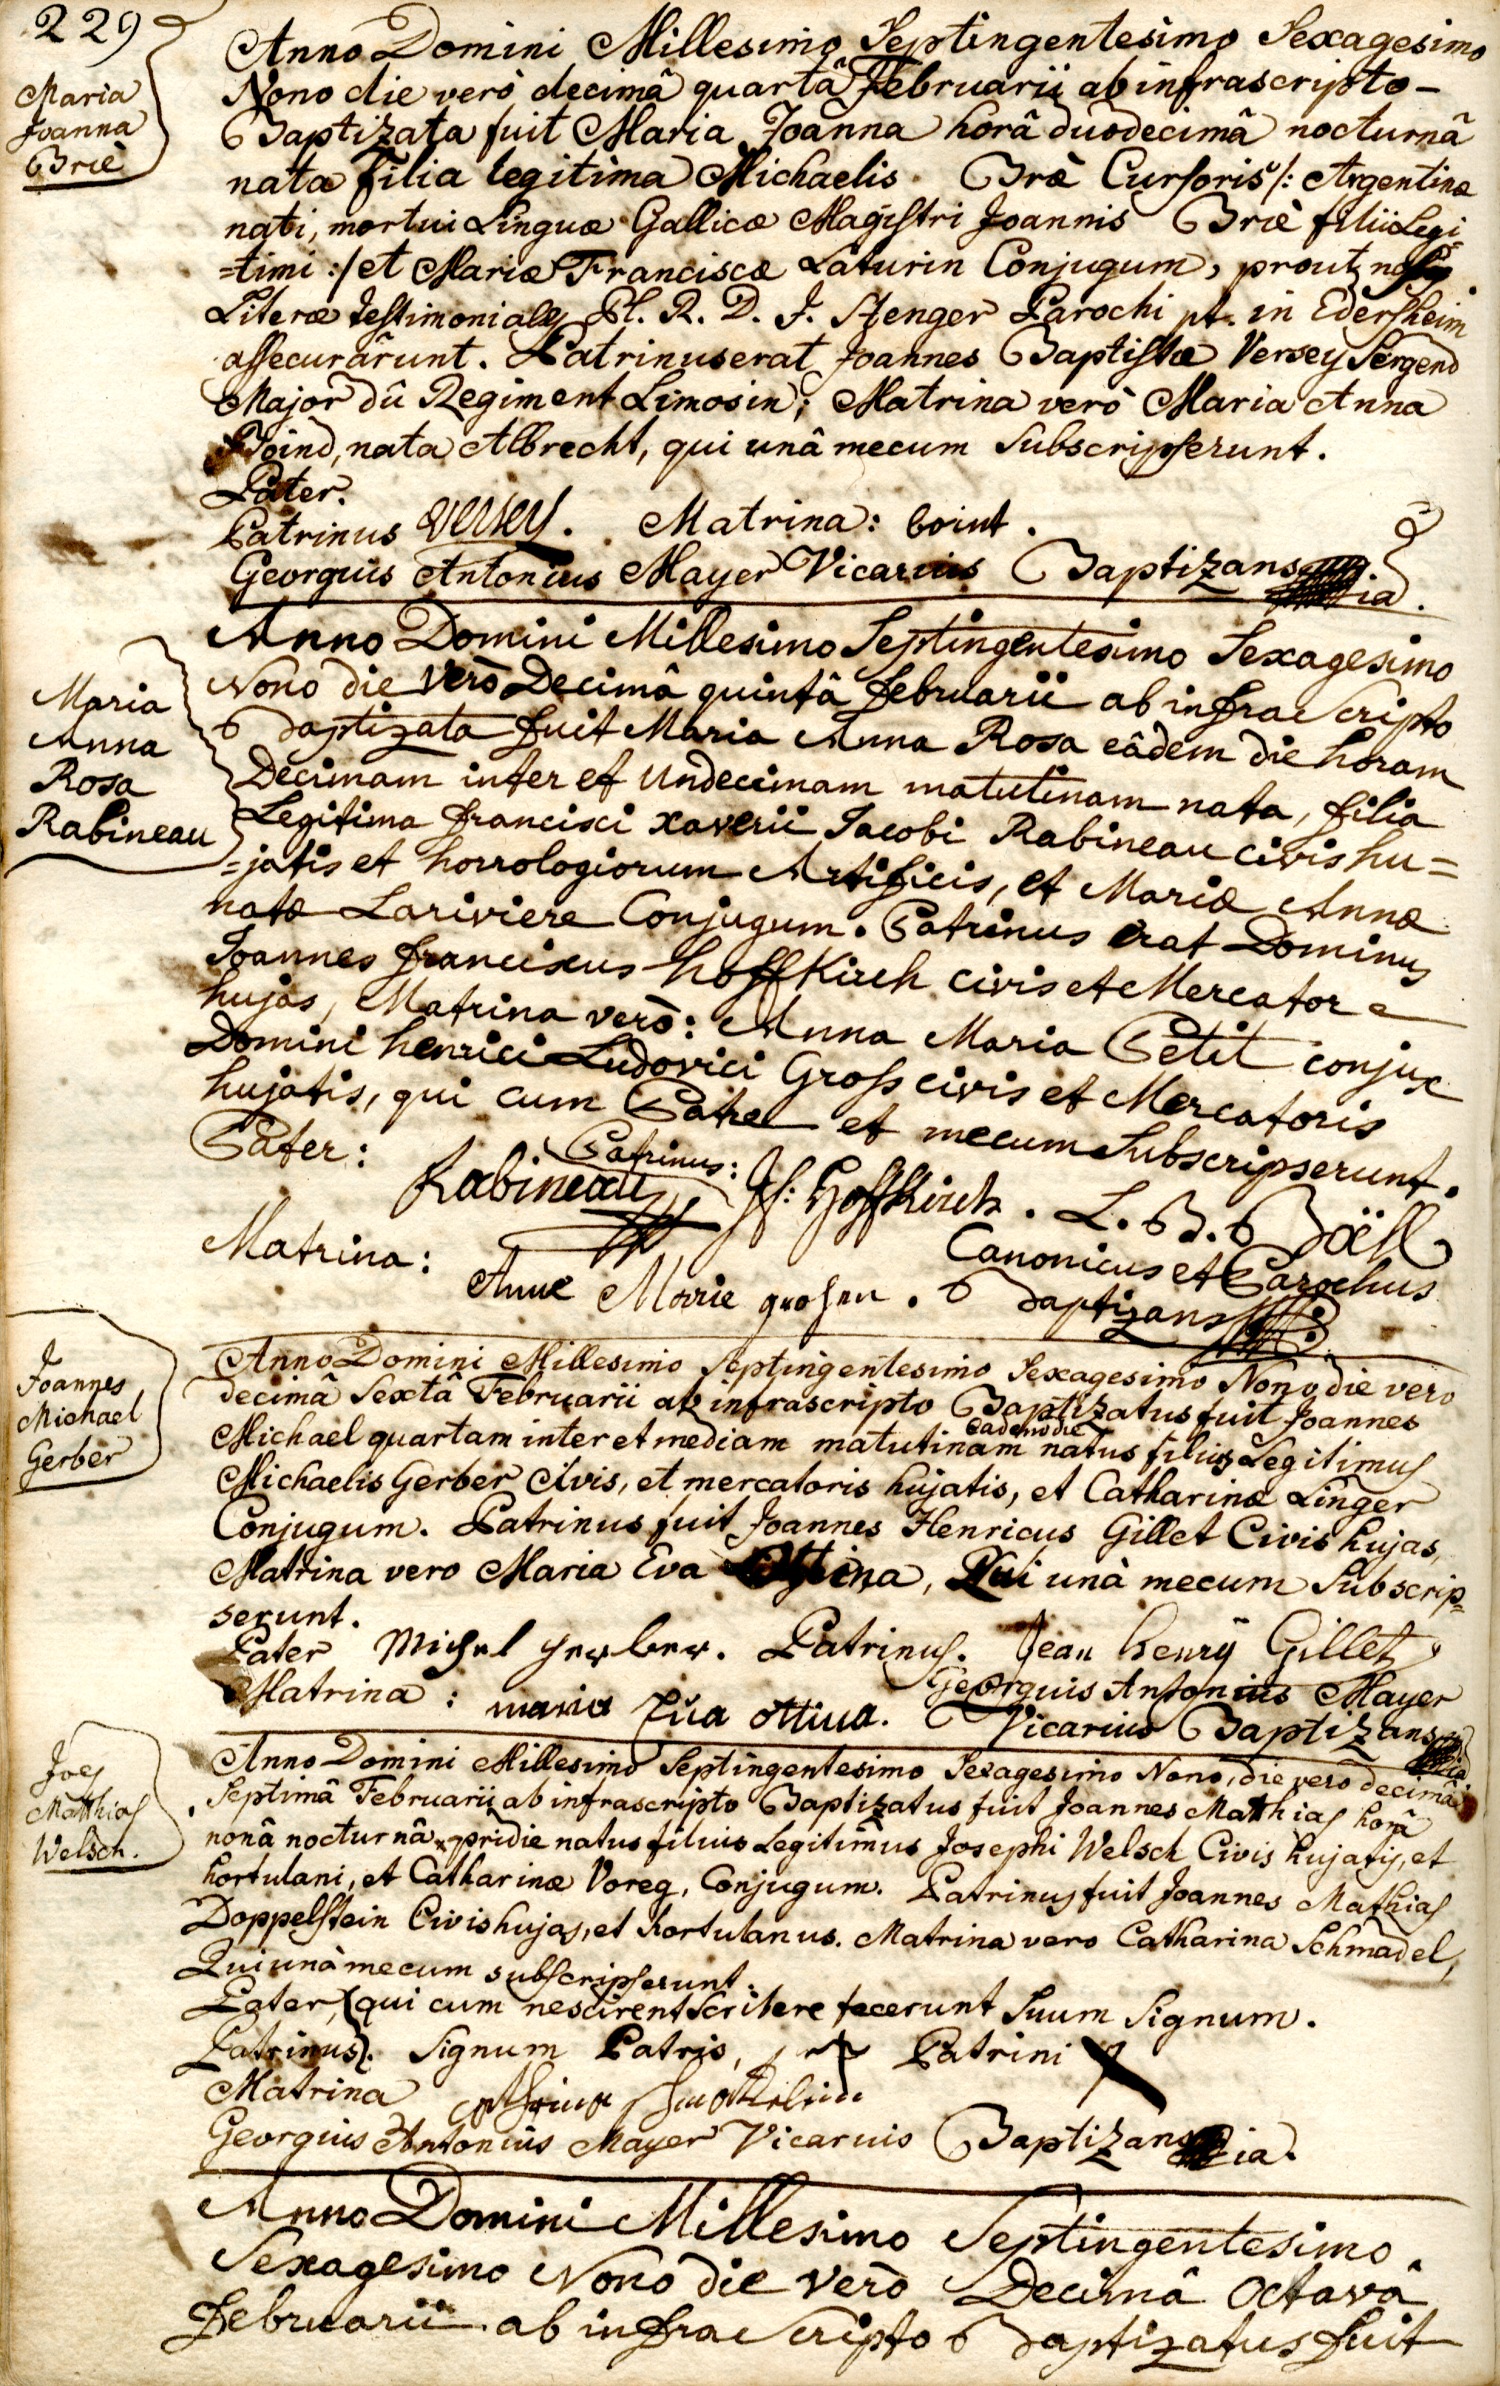 229
Maria
Joanna
Briè
Anno Domini Millesimo Septingentesimo Sexagesimo
Nono die verò decimâ quartâ Februarii ab infrascripto –
Baptizata fuit Maria Joanna horâ duodecimâ nocturnâ
nata Filia legitima Michaelis Brè Cursoris /: Argentinæ
nati, mortui Linguæ Gallicæ Magistri Joannis Briè filii Legi=
=timi :/ et Mariæ Franciscæ Laturin Conjugum, prout nos
Literæ testimoniales Pl. R. D. J. Stenger Parochi pt. in Edersheim
assecurârunt. Patrinus erat Joannes Baptista Versey Sergend
Major dû Regiment Limosin; Matrina verò Maria Anna
nata Albrecht, qui unâ mecum Subscripserunt.
Pater.
Patrinus versey. Matrina: boint.
Georguis Antonius Mayer Vicarius Baptizans
Maria
Anna
Rosa
Rabineau
Anno Domini Millesimo Septingentesimo Sexagesimo
Nono die verò Decimâ quintâ februarii ab infra scripto
Baptizata fuit Maria Anna Rosa eâdem die horam
Decimam inter et Undecimam matutinam nata, filia
Legitima francisci xaverii Jacobi Rabineau civis hu=
=jatis et horrologiorum Artificis, et Mariæ Annæ
natæ Lariviere Conjugum. Patrinus erat Dominus
Joannes franciscus Hoffkirch civis et Mercator
hujas, Matrina verò: Anna Maria Petit conjux
Domini henrici Ludovici Gross civis et Mercatoris
hujatis, qui cum Patre et mecum Subscripserunt.
Pater: Rabineau Patrinus: Jf: Hoffkirch. L. B. Böell
Canonicus et Parochus
Matrina: Anne Marie grosen. Baptizans
Joannes
Michael
Gerber
Anno Domini Millesimo Septingentesimo Sexagesimo Nono, die vero
decimâ Sextâ Februarii ab infrascripto Baptizatus fuit Joannes
eadem die
Michael quartam inter et mediam matutinam natus filius Legitimus
Michaelis Gerber Civis, et mercatoris hujatis, et Catharinæ Linger
Conjugum. Patrinus fuit Joannes Henricus Gillet Civis hujas,
Matrina vero Maria Eva Ottina, Qui unà mecum Subscrip=
serunt.
Pater Michel Gerber. Patrinus. Jean henrÿ Gillet
Georguis Antonius Mayer
Matrina: maria Eva ottina. Vicarius Baptizans
Joes
Matthias
Welsch.
Anno Domini Millesimo Septingentesimo Sexagesimo Nono, die vero decimâ
Septimâ Februarii ab infrascripto Baptizatus fuit Joannes Matthias horâ
nonâ nocturnâ pridie natus filius Legitimus Josephi Welsch Civis hujatis, et
hortulani, et Catharinæ Voreg, Conjugum. Patrinus fuit Joannes Mathias
Doppelstein Civis hujas, et hortulanus. Matrina vero Catharina Schmadel,
Qui unà mecum subscripserunt.
Pater, (qui cum nescirent scribere fecerunt Suum Signum.
Patrinus). Signum Patris, Patrini
Matrina
Georguis Antonius Mayer Vicarius Baptizans
Anno Domini Millesimo Septingentesimo
Sexagesimo Nono die verò Decimâ Octavâ
februarii ab infra scripto Baptizatus fuit